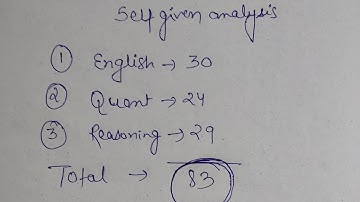 Self given analysis
① English → 30
② Quant → 24
③ Reasoning → 29
Total → 83